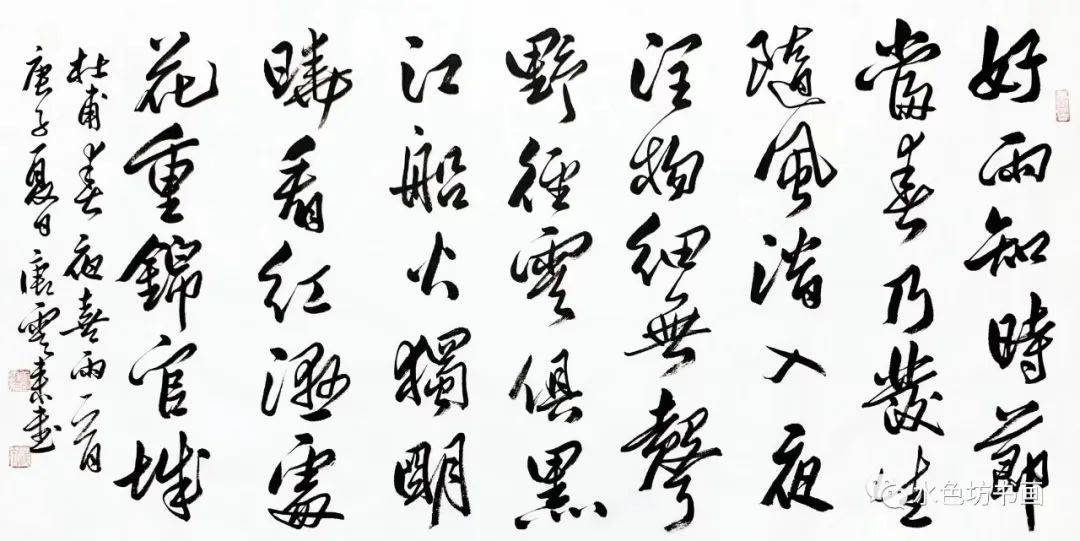 好雨知時節
當春乃發生
隨風潛入夜
潤物細無聲
野徑雲俱黑
江船火獨明
曉看紅濕處
花重錦官城
杜甫春夜喜雨一首
庚子夏日唐雲來書
水色坊书画